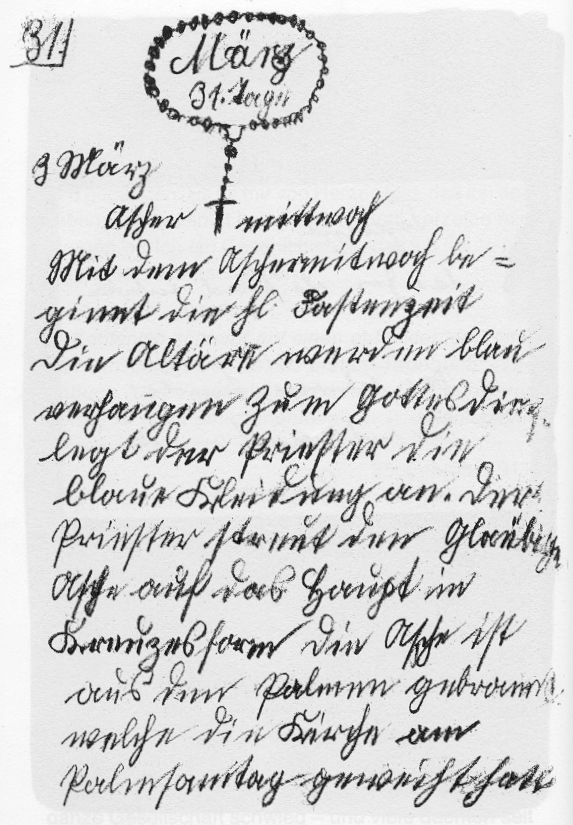 31.
März
31. Tage
3 März
Ascher mittwoch
Mit dem Aschermitwoch be=
ginnt die hl. Fastenzeit
Die Altäre werden blau
verhangen Zum Gottesdien
legt der Priester die
blaue Kleidung an. Der
Priester streut den Gläubigen
Asche auf das Haupt in
Kreuzesform Die Asche ist
aus den Palmen gebrannt
welche die Kirche am
Palmsamtag geweiht hatt